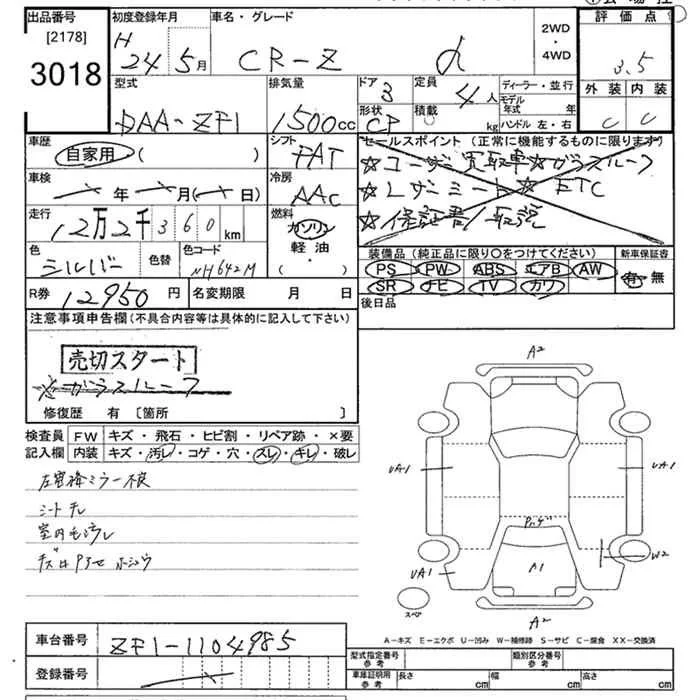 出品番号 初度登録年月 車名・グレード 2WD・4WD 評価点
[2178]
3018
H 24年 5月 CR-Z α 3.5
型式 排気量 ドア 3 定員 4人 ディーラー・並行 外装 内装
DAA-ZF1 1500cc 形状 CP 積載 kg モデル年式 年 C C
ハンドル 左・右
車歴 シフト セールスポイント (正常に機能するものに限ります)
自家用 ( ) FAT ☆ユーザー買取車☆ガラスルーフ
車検 年 月 ( 日) 冷房 AAC ☆レザーシート☆ETC
走行 燃料 ☆保証書/取説
12万2千360km ガソリン・軽油・( )
色 色替 色コード 装備品 (純正品に限り○をつけてください) 新車保証書
シルバー NH642M PS PW ABS エアB AW 有・無
SR ナビ TV カワ
R券 12950円 名変期限 月 日 後日品
注意事項申告欄(不具合内容等は具体的に記入して下さい)
売切スタート
※ガラスルーフ
修復歴 有 〔箇所 〕
検査員 FW キズ・飛石・ヒビ割・リペア跡・×要
記入欄 内装 キズ・汚レ・コゲ・穴・スレ・キレ・破レ
シートキレ
A2
UA1 UA1
UA1 A1 W2
スペア A2
A-キズ E-エクボ U-凹み W-補修跡 S-サビ C-腐食 XX-交換済
車台番号 ZF1-1104985 型式指定番号 参考 類別区分番号 参考
登録番号 車庫証明用 参考 長さ cm 幅 cm 高さ cm